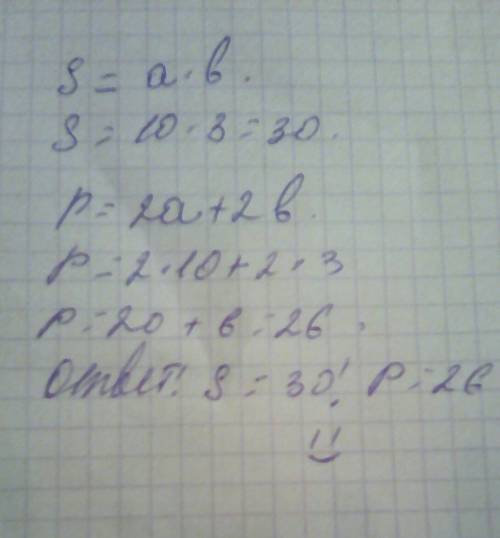 S = a · b.
S = 10 · 3 = 30.
P = 2a + 2b.
P = 2 · 10 + 2 · 3
P = 20 + 6 = 26.
Ответ: S = 30! P = 26